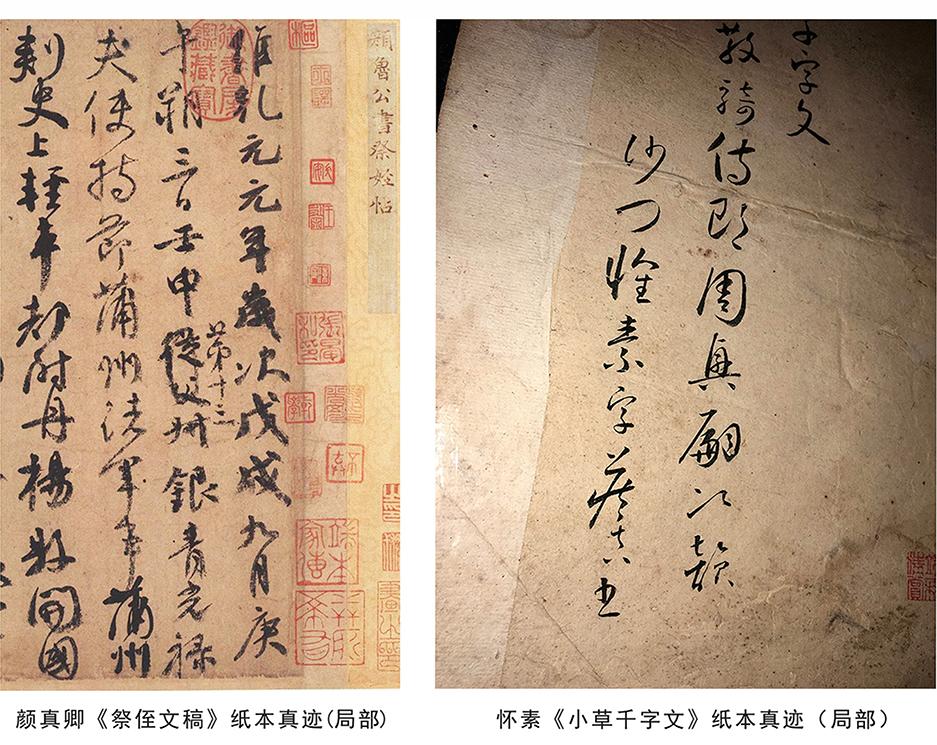 顏魯公書祭姪帖
維乾元元年歲次戊戌九月庚
午朔三日壬申第十三從父叔銀青光祿
夫使持節蒲州諸軍事蒲州
刺史上輕車都尉丹楊縣開國
千字文
散騎侍郎周興嗣次韻
沙門懷素字藏真書
颜真卿《祭侄文稿》纸本真迹(局部)
怀素《小草千字文》纸本真迹（局部）